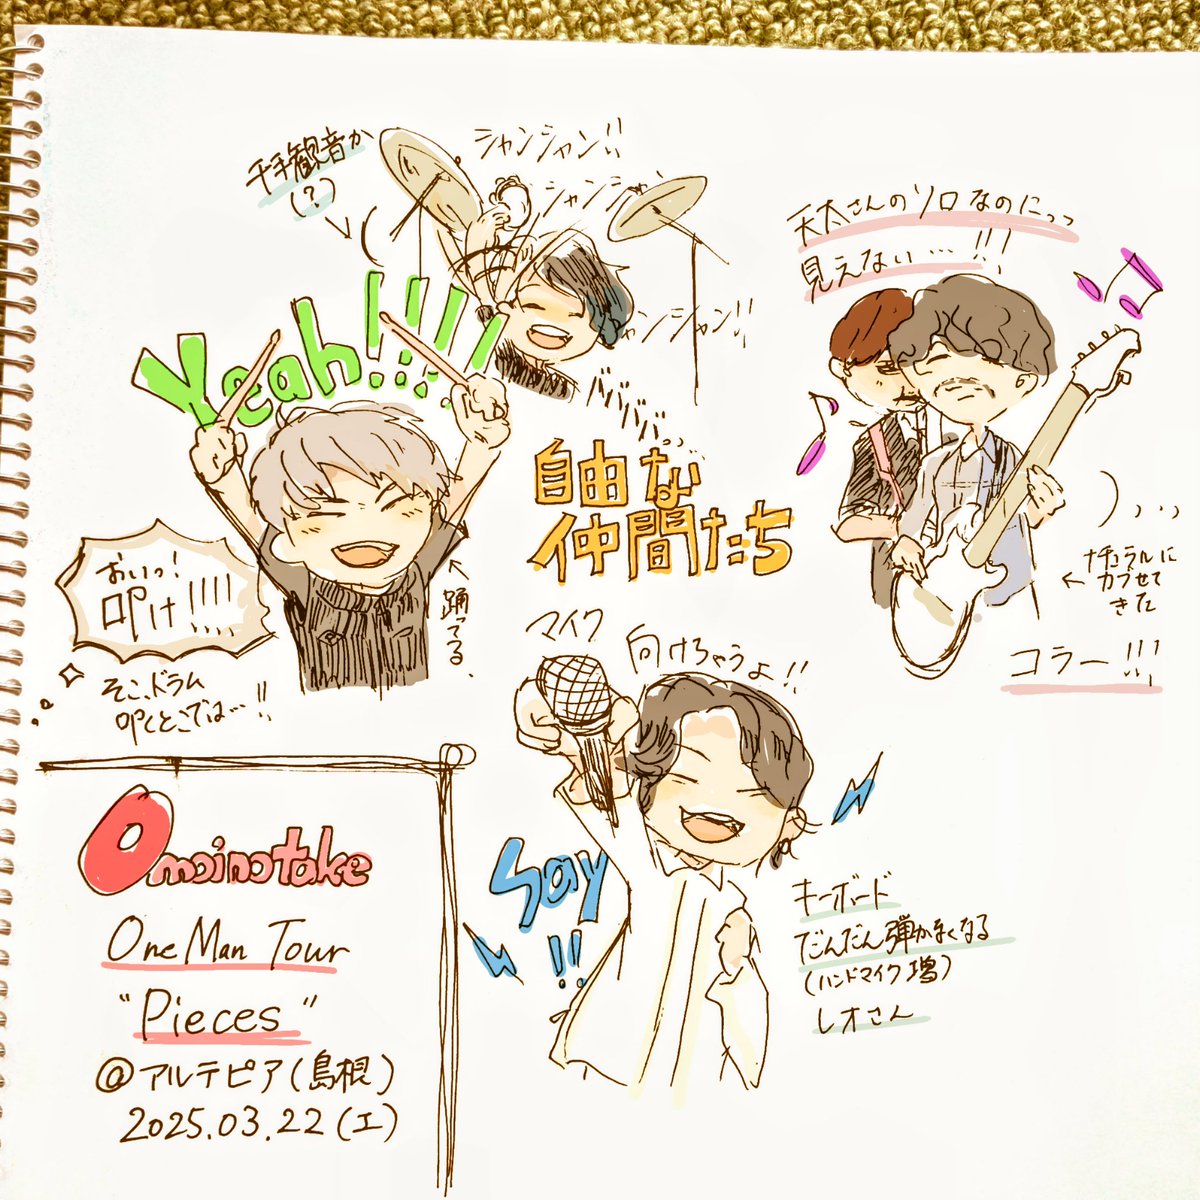 千手観音か
(?)
シャンシャン!!
シャンシャン
シャンシャン!!
Yeah!!!!
ドドドドバッ
自由な
仲間たち
天太さんのソロなのにっっ
見えない…!!!
ナチュラルに
カブせて
きた
コラー!!!
おいっ!
叩け!!!!
踊ってる
そこ、ドラム
叩くとこでは…!!
マイク
向けちゃうよ!!
Say
!!
キーボード
だんだん弾かなくなる
(ハンドマイク増)
レオさん
Omoinotake
One Man Tour
"Pieces"
@アルテピア(島根)
2025.03.22(土)